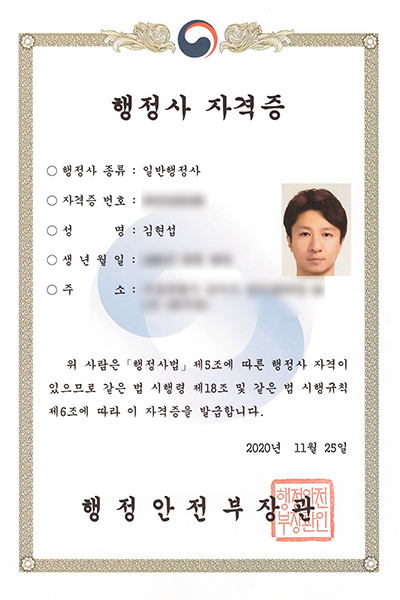 행정사 자격증
○ 행정사 종류 : 일반행정사
○ 자격증 번호 :
○ 성 명 : 김현섭
○ 생 년 월 일 :
○ 주 소 :
위 사람은「행정사법」제5조에 따른 행정사 자격이
있으므로 같은 법 시행령 제18조 및 같은 법 시행규칙
제6조에 따라 이 자격증을 발급합니다.
2020년 11월 25일
행정안전부장관
행정안전
부장관인